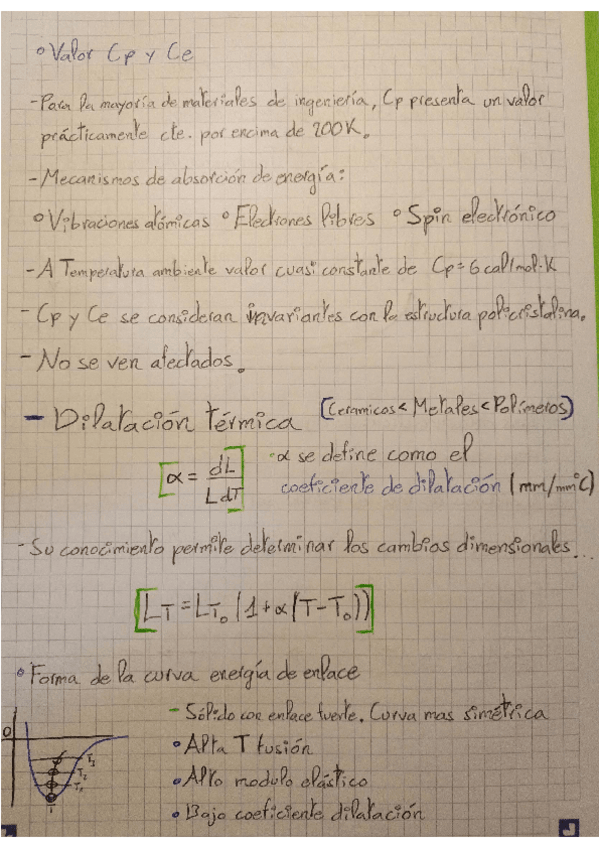 ° Valor Cp y Ce
- Para la mayoría de materiales de ingeniería, Cp presenta un valor
prácticamente cte. por encima de 200K.
- Mecanismos de absorción de energía:
° Vibraciones atómicas ° Electrones libres ° Spin electrónico
- A Temperatura ambiente valor cuasi constante de Cp = 6 cal/mol·K
- Cp y Ce se consideran invariantes con la estructura policristalina.
- No se ven afectados.
- Dilatación térmica (Ceramicos < Metales < Polímeros)
[α = dL / L dT]
· α se define como el
coeficiente de dilatación (mm/mm°C)
- Su conocimiento permite determinar los cambios dimensionales...
[L_T = L_T₀ (1 + α(T - T₀))]
° Forma de la curva energía de enlace
- Sólido con enlace fuerte. Curva mas simétrica
• Alta T fusión
• Alto modulo elástico
• Bajo coeficiente dilatación
0
T₃
T₂
T₁